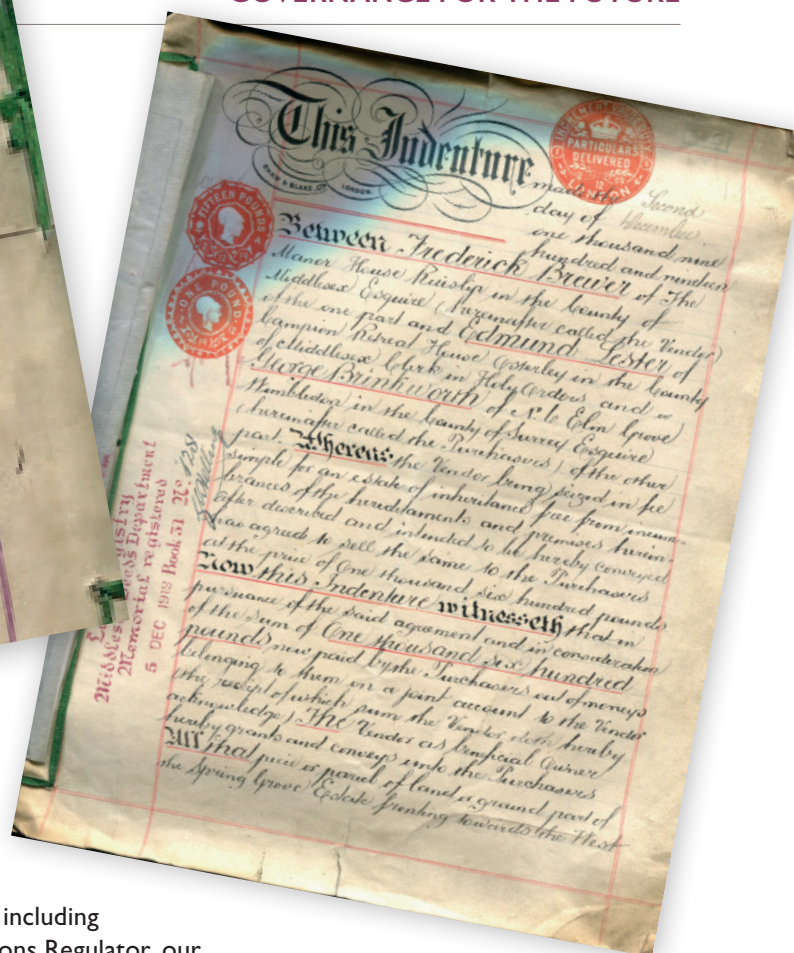 GOVERNANCE FOR THE FUTURE
This Indenture
SHAW & BLAKE LTD LONDON.
INCREMENT VALUE DUTY
PARTICULARS
DELIVERED
LONDON
FIFTEEN POUNDS
ONE POUND
made the Second
day of December
one thousand nine
hundred and nineteen
Between Frederick Brewer of The
Manor House Ruislip in the County of
Middlesex Esquire (hereinafter called the Vendor)
of the one part and Edmund Lester of
Campion Retreat House Osterley in the County
of Middlesex Clerk in Holy Orders and
George Brinkworth of Elm Grove
Wimbledon in the County of Surrey Esquire
(hereinafter called the Purchasers) of the other
part. Whereas the Vendor being seized in fee
simple for an estate of inheritance free from incum-
brances of the hereditaments and premises herein-
after described and intended to be hereby conveyed
has agreed to sell the same to the Purchasers
at the price of One thousand six hundred pounds
Now this Indenture witnesseth that in
pursuance of the said agreement and in consideration
of the sum of One thousand six hundred
pounds now paid by the Purchasers out of moneys
belonging to them on a joint account to the Vendor
(the receipt of which sum the Vendor doth hereby
acknowledge) The Vendor as beneficial Owner
hereby grants and conveys unto the Purchasers
All that piece or parcel of land or ground part of
the Spring Grove Estate fronting towards the West
Middlesex Deeds Department
Memorial registered
5 DEC 1919 Book 51 No. 1251
including
ons Regulator, our